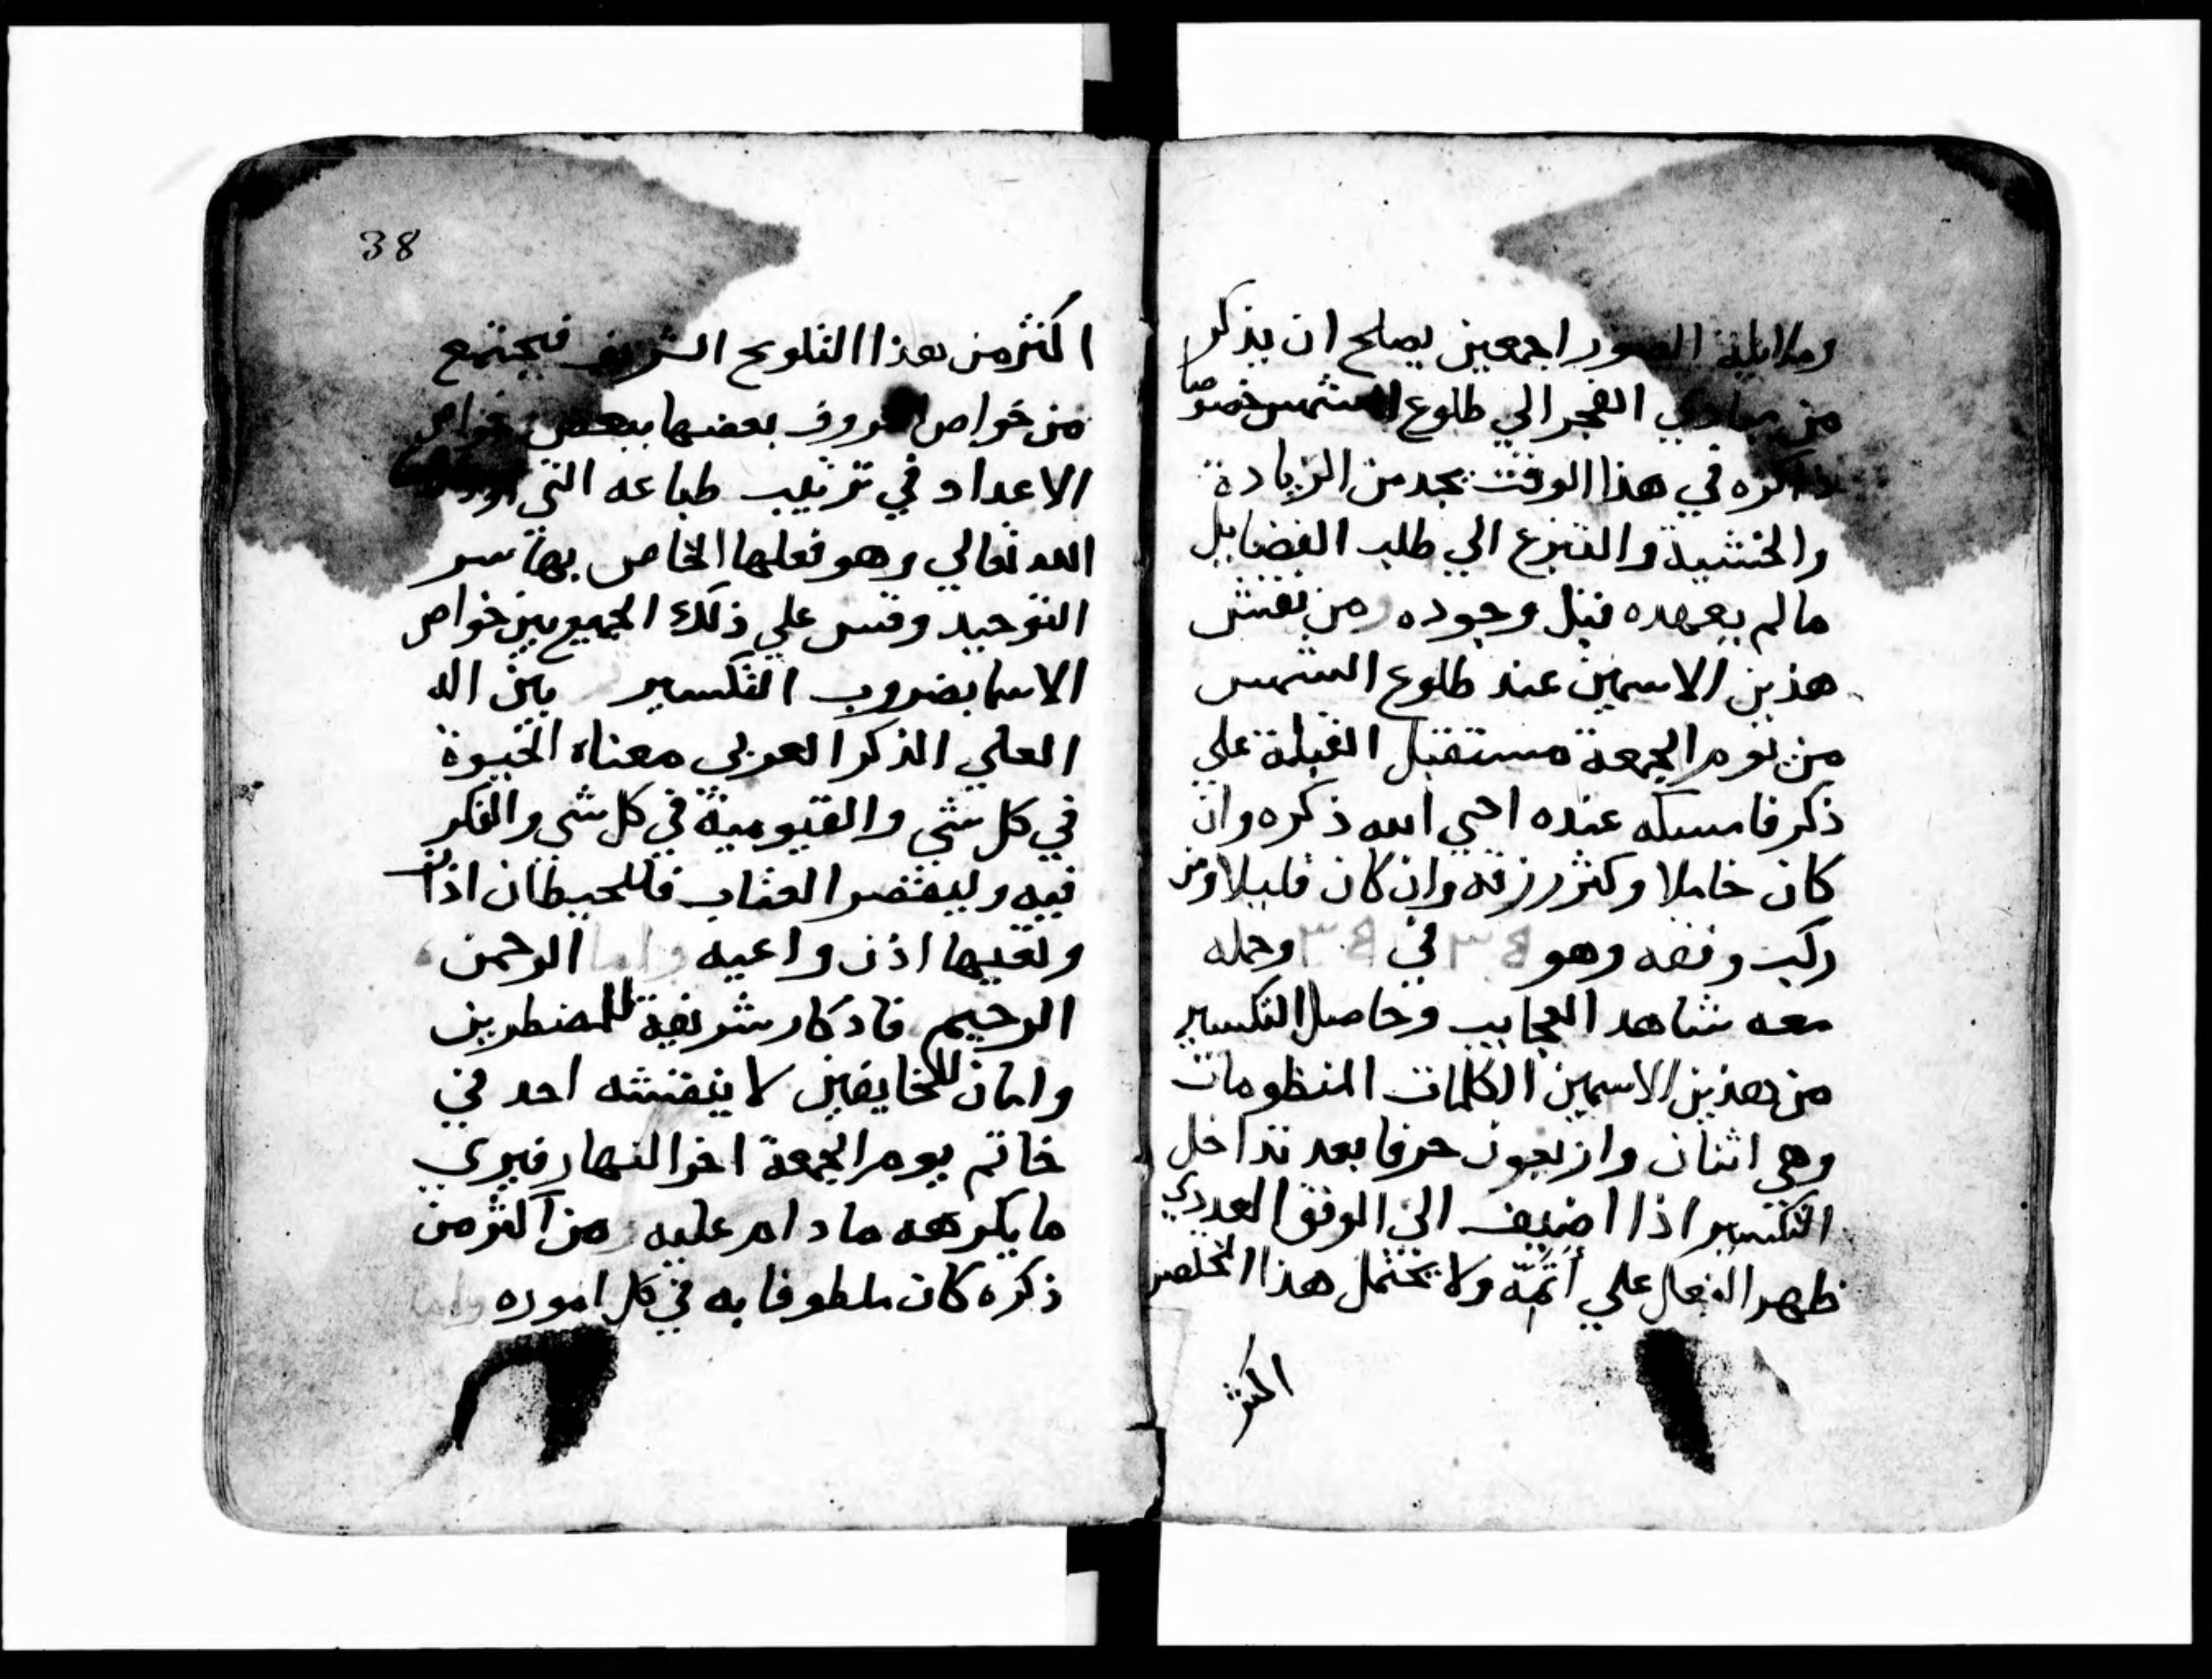 وملايكة الصور اجمعين يصلح ان يذكر
من مبادي الفجر الي طلوع الشمس خصوصا
ذاكره في هذا الوقت يجد من الزيادة
والخشية والتبرع الي طلب الفضايل
مالم يعهده قبل وجوده ومن نقش
هذين الاسمين عند طلوع الشمس
من يوم الجمعة مستقبل القبلة علي
ذكر فامسكه عنده احيي الله ذكره وان
كان خاملا وكثر رزقه وان كان قليلا ومن
ركب وفقه وهو في وحمله
معه شاهد العجايب وحاصل التكسير
من هذين الاسمين الكلمات المنظومات
وهي اثنان واربعون حرفا بعد تداخل
التكسير اذا اضيف الي الوفق العددي
ظهر الفعال علي أتمّه ولا يحتمل هذا المختصر
اكثر
38
اكثر من هذا التلويح الشريف فيجتمع
من خواص الحروف بعضها ببعض خواص
الاعداد في ترتيب طباعه التي
الله تعالي وهو فعلها الخاص بها سر
التوحيد وقس علي ذلك الجميع بين خواص
الاسما بضروب التكسير بين الله
العلي الذكر العربي معناه الحيوة
في كل شي والقيومية في كل شي والفكر
فيه وليفتصر العتاب فللحيطان اذان
وتعيها اذن واعيه واما الرحمن
الرحيم فاذكار شريفة للمضطرين
وامان للخايفين لا ينقشه احد في
خاتم يوم الجمعة اخر النهار فيري
ما يكرهه ما دام عليه ومن اكثر من
ذكره كان ملطوفا به في كل اموره واما